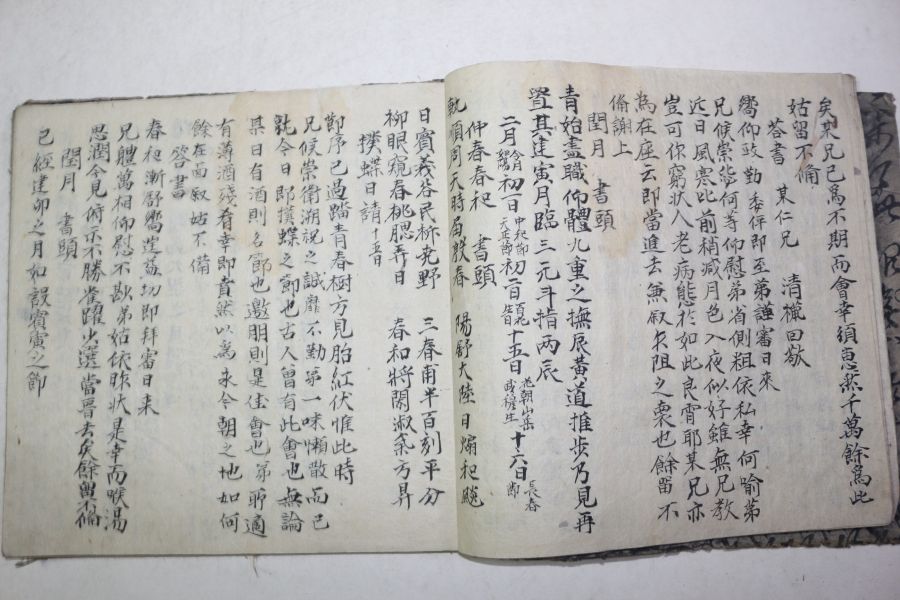 矣果兄已爲不期而會幸須惠然千萬餘爲此
姑留不備
答書 某仁兄 清櫬回欸
嚮仰政勤委伻即至第謹審日來
兄候崇毖何等仰慰弟省側粗依私幸何喻第
近日風寒比前稍减月色入夜似好雖無兄敎
豈可作窮狀人老病態於如此良宵耶某兄亦
爲在座云即當進去無俶戾阻之票也餘留不
備謝上
閏月 書頭
青始盡職仰體九重之撫辰黃道推步乃見再
置其建寅月臨三元斗指兩辰
二月 初一日 中和節 天正節 初二日 十五日 老朝山岳 十六日 長春節
仲春春和 書頭 陽舒大陸日煽和飈
執順周天時屆殷春
日賓羲谷民析堯野 三春甫半百刻平分
柳眼窺春桃腮弄日 春和將閙淑氣方昇
撲蝶日請 十五日
節序已過踏青春樹方見胎紅伏惟此時
兄候崇衛溯祝之誠靡不勤第一味懶散而已
就今日即撲蝶之節也古人曾有此會也無論
某日有酒則名節也邀朋則是佳會也第聊適
有薄酒殘肴幸即賁然以爲永今朝之地如何
餘在面叙姑不備
答書
春和漸舒嚮𨓏益切即拜審日來
兄體萬相仰慰不歇弟姑依昨狀是幸而喉湯
思潤今見俯示不勝雀躍少選當晉去矣餘留不備
閏月 書頭
已經建卯之月如設賓寅之節